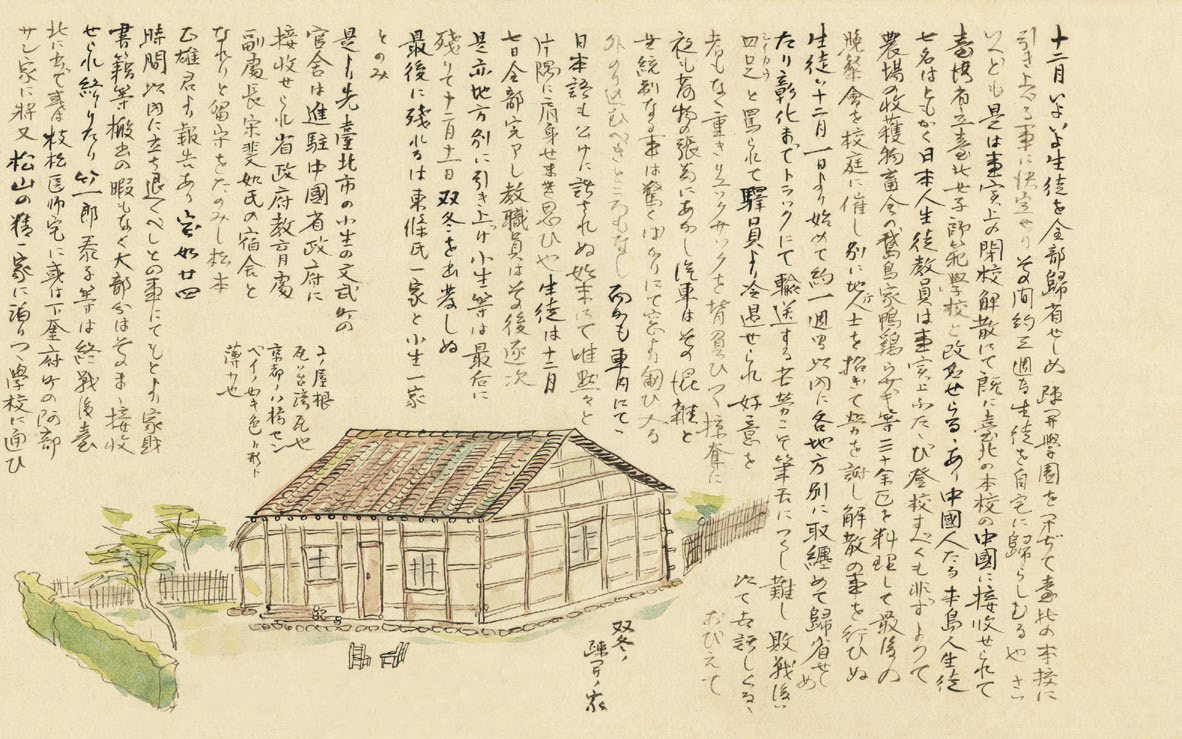 十二月いよいよ生徒を全部歸省せしめ疎開學園を閉ぢて臺北の本校に
引き上ぐる事に決定せりその間約三週間生徒を自宅に歸らしむるやさ
いへども是は事実上の閉校解散にて既に臺北の本校の中國に接收せられて
臺灣省立臺北女子師範學校と改称せらるゝあり中國人たる本島人生徒
七名はともかく日本人生徒教員は事実上ふたゝび登校すべくも非ずよつて
農場の收穫物畜舎の鵞鳥家鴨鶏らサギ等三十余匹を料理して最後の
晩餐會を校庭に催し別に地方人士を招ぎて労を謝し解散の事を行ひぬ
生徒は十二月一日より始めて約一週間以内に各地方別に取纏めて歸省せしめ
たり彰化までトラックにて輸送する苦労こそ筆舌につくし難し敗戦後は
四足と罵られて驛員より冷遇せられ好意を以て古語しくるゝ
者もなく重きリュックサックを背負ひつゝ掠奪におびえて
夜も荷物の張番にあかし汽車はその混雑と
無統制なる事は驚くばかりにて窓より匍ひ入る
外のり込むべきところもなし而かも車内にて
日本語も公けに話されぬ始末にて唯黙々と
片隅に肩身せまき思ひや生徒は十二月
七日全部完了し教職員は其後逐次
是亦地方別に引き上げ小生等は最后に
残りて十二月十一日双冬を出発しぬ
最後に残れるは東條氏一家と小生一家
とのみ
是より先臺北市の小生の文武町の
官舎は進駐中國省政府に
接收せられ省政府教育處
副處長宋斐如氏の宿舎と
なれりと留守をたのみし松本
正雄君より報告あり
時間以内に立ち退くべしとの事にてもとより家財
書籍等搬出の暇もなく大部分はそのまゝ接收
せられ終りたり 一郎泰子等は終戦後臺
北に出で或は枝松医師宅に或は下奎府町の阿部
サレ家に将又松山の精一家に泊りつゝ學校に通ひ
コノ屋根
瓦ハ台湾瓦也
京都ノ八橋セン
ベイノ如キ色ト形ト
薄サ也
双冬ノ
疎開ノ家